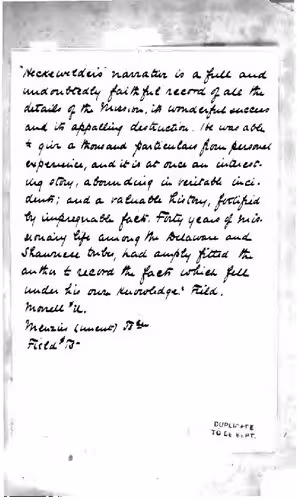 "Heckewelder's narrative is a full and
undoubtedly faithful record of all the
details of the Mission, its wonderful success
and its appalling destruction. He was able
to give a thousand particulars from personal
experience, and it is at once an interest-
ing story, abounding in veritable inci-
dents; and a valuable history, fortified
by impregnable facts. Forty years of mis-
sionary life among the Delaware and
Shawnese tribes, had amply fitted the
author to record the facts which fell
under his own knowledge." Field.
Morrell
Menzies
Field
DUPLICATE
TO BE KEPT.